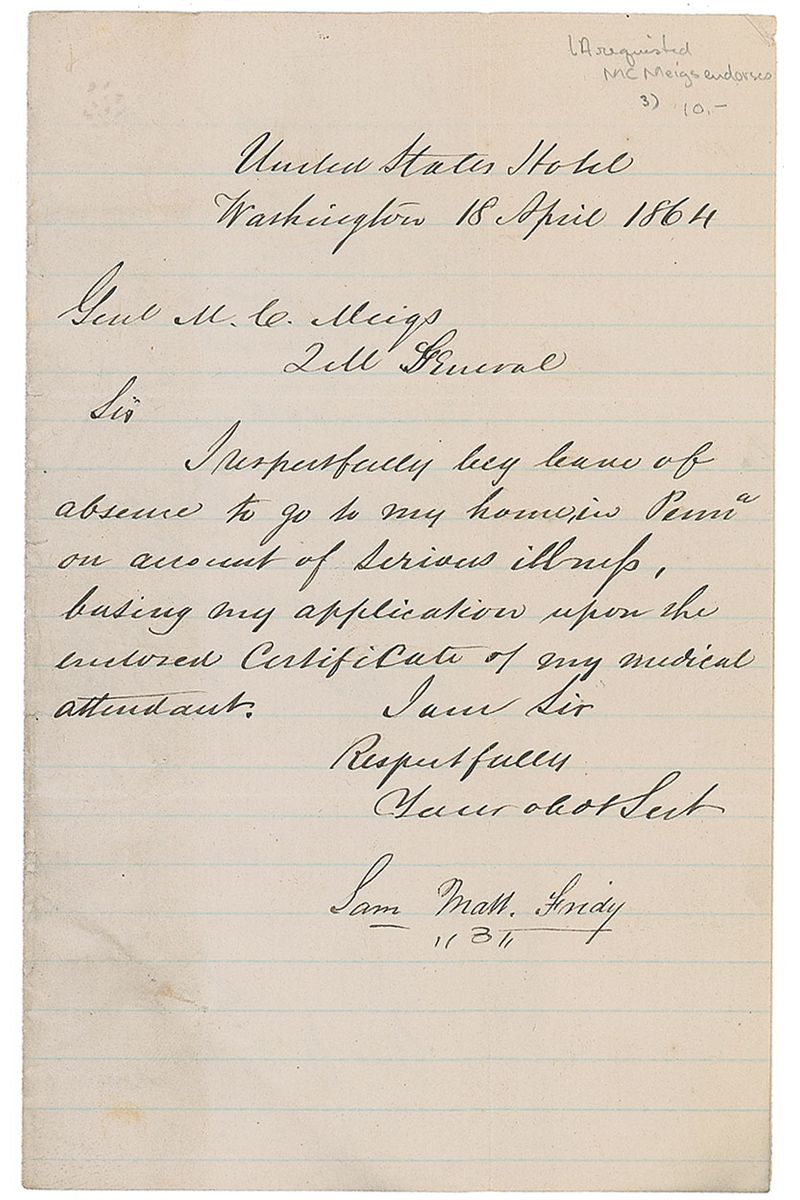 LA requisted
MC Meigs endorses
3) 10.-
United States Hotel
Washington 18 April 1864
Genl M. C. Meigs
2 M General
Sir
I respectfully beg leave of
absence to go to my home, in Penna
on account of serious illness,
basing my application upon the
enclosed Certificate of my medical
attendant. I am Sir
Respectfully
Your obdt Servt
Sam Matt. Fridy
"3"